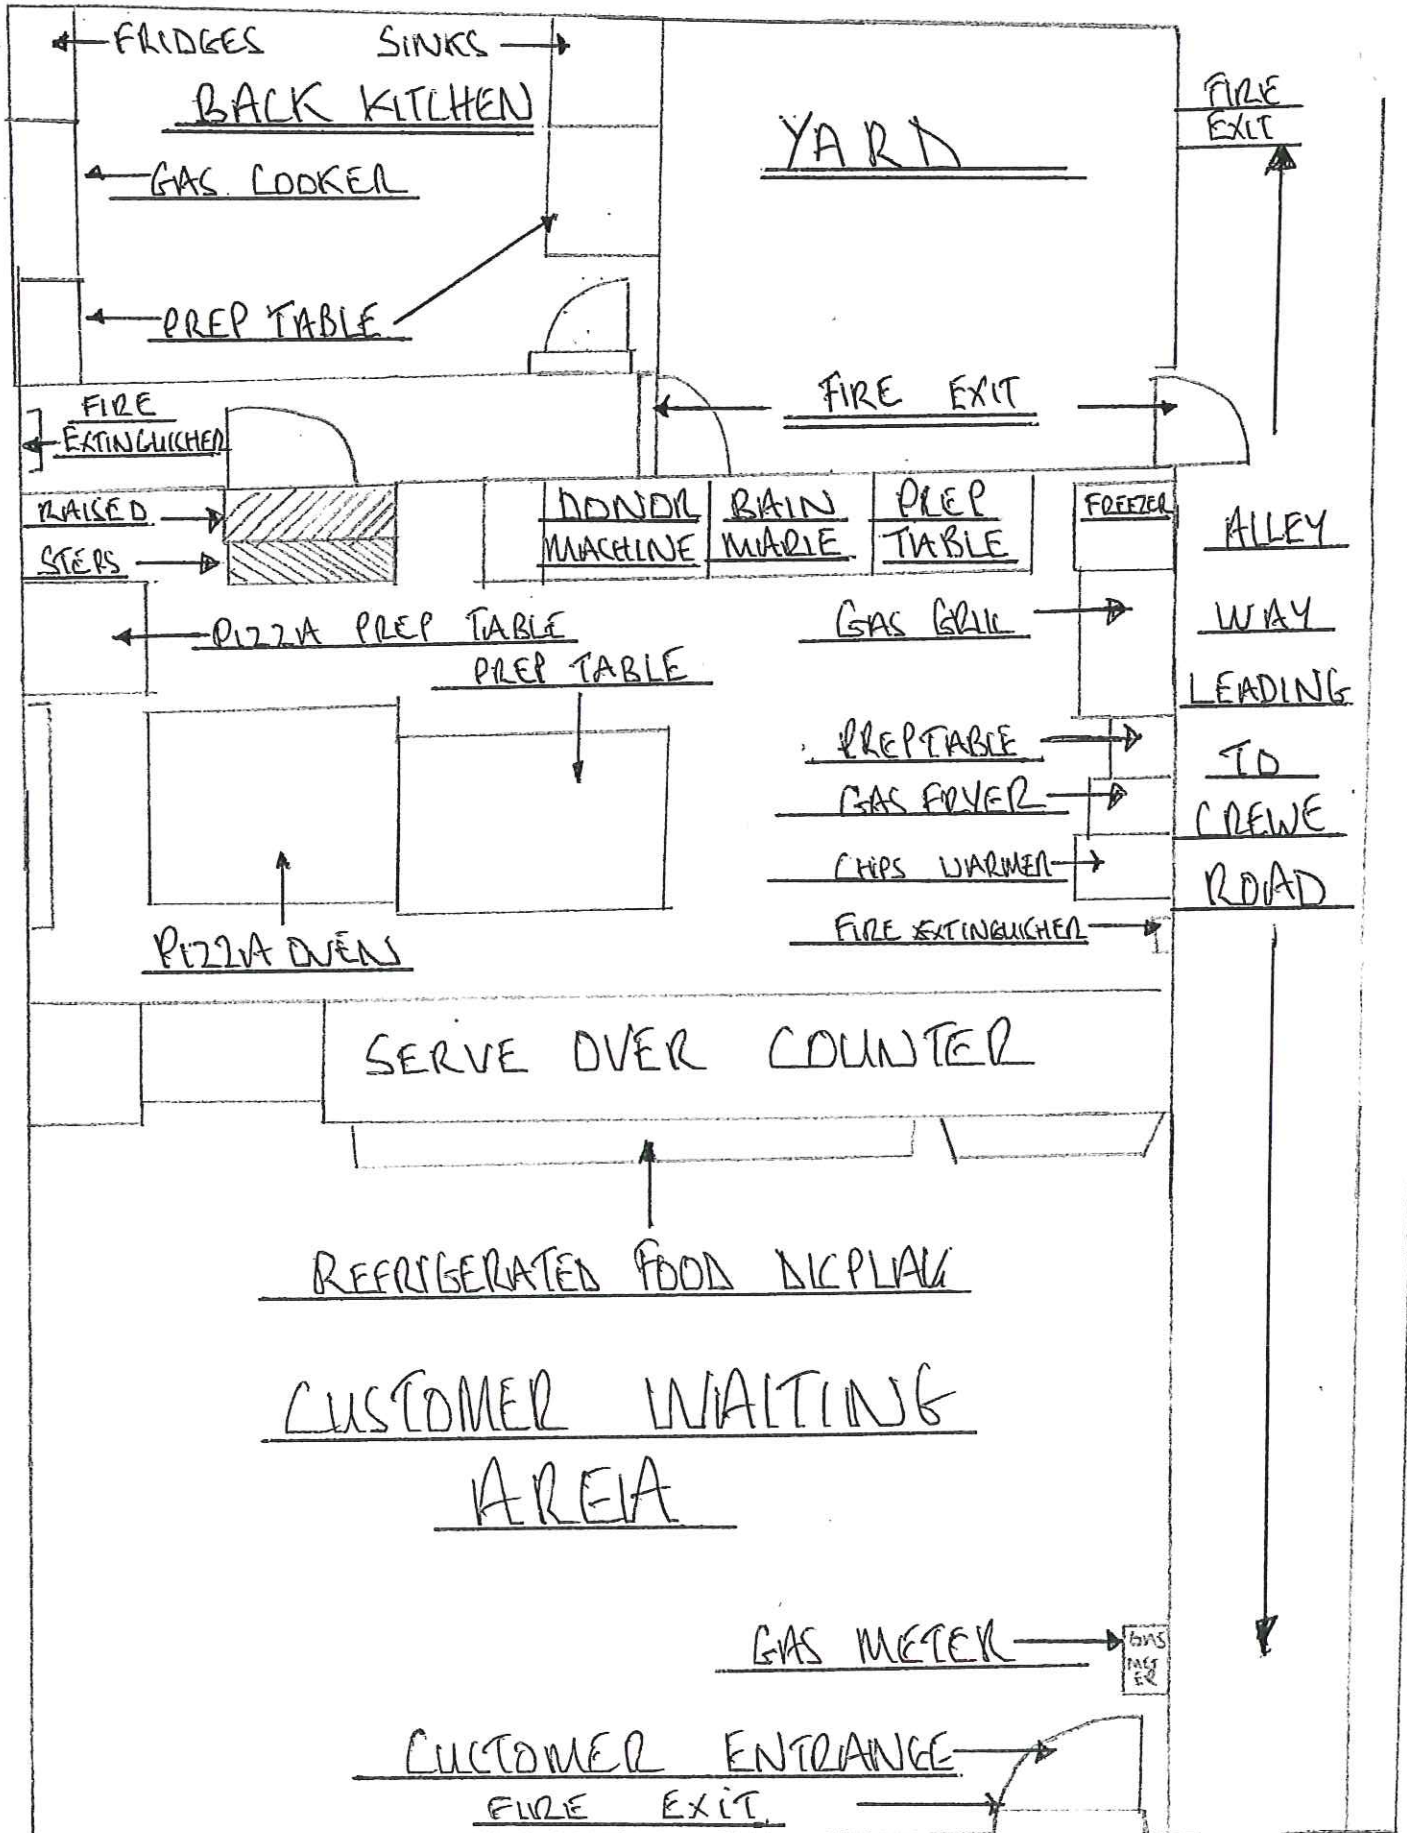 FRIDGES SINKS
BACK KITCHEN
YARD
FIRE
EXIT
GAS COOKER
PREP TABLE
FIRE
EXTINGUICHER
FIRE EXIT
RAISED
STEPS
DONOR
MACHINE
BAIN
MARIE
PREP
TABLE
FREEZER
ALLEY
WAY
LEADING
TO
CREWE
ROAD
PIZZA PREP TABLE
PREP TABLE
GAS GRILL
PREP TABLE
GAS FRYER
CHIPS WARMER
FIRE EXTINGUICHER
PIZZA OVEN
SERVE OVER COUNTER
REFRIGERATED FOOD DICPLAY
CUSTOMER WAITING
AREA
GAS METER
GAS
MET
ER
CUCTOMER ENTRANCE
FIRE EXIT